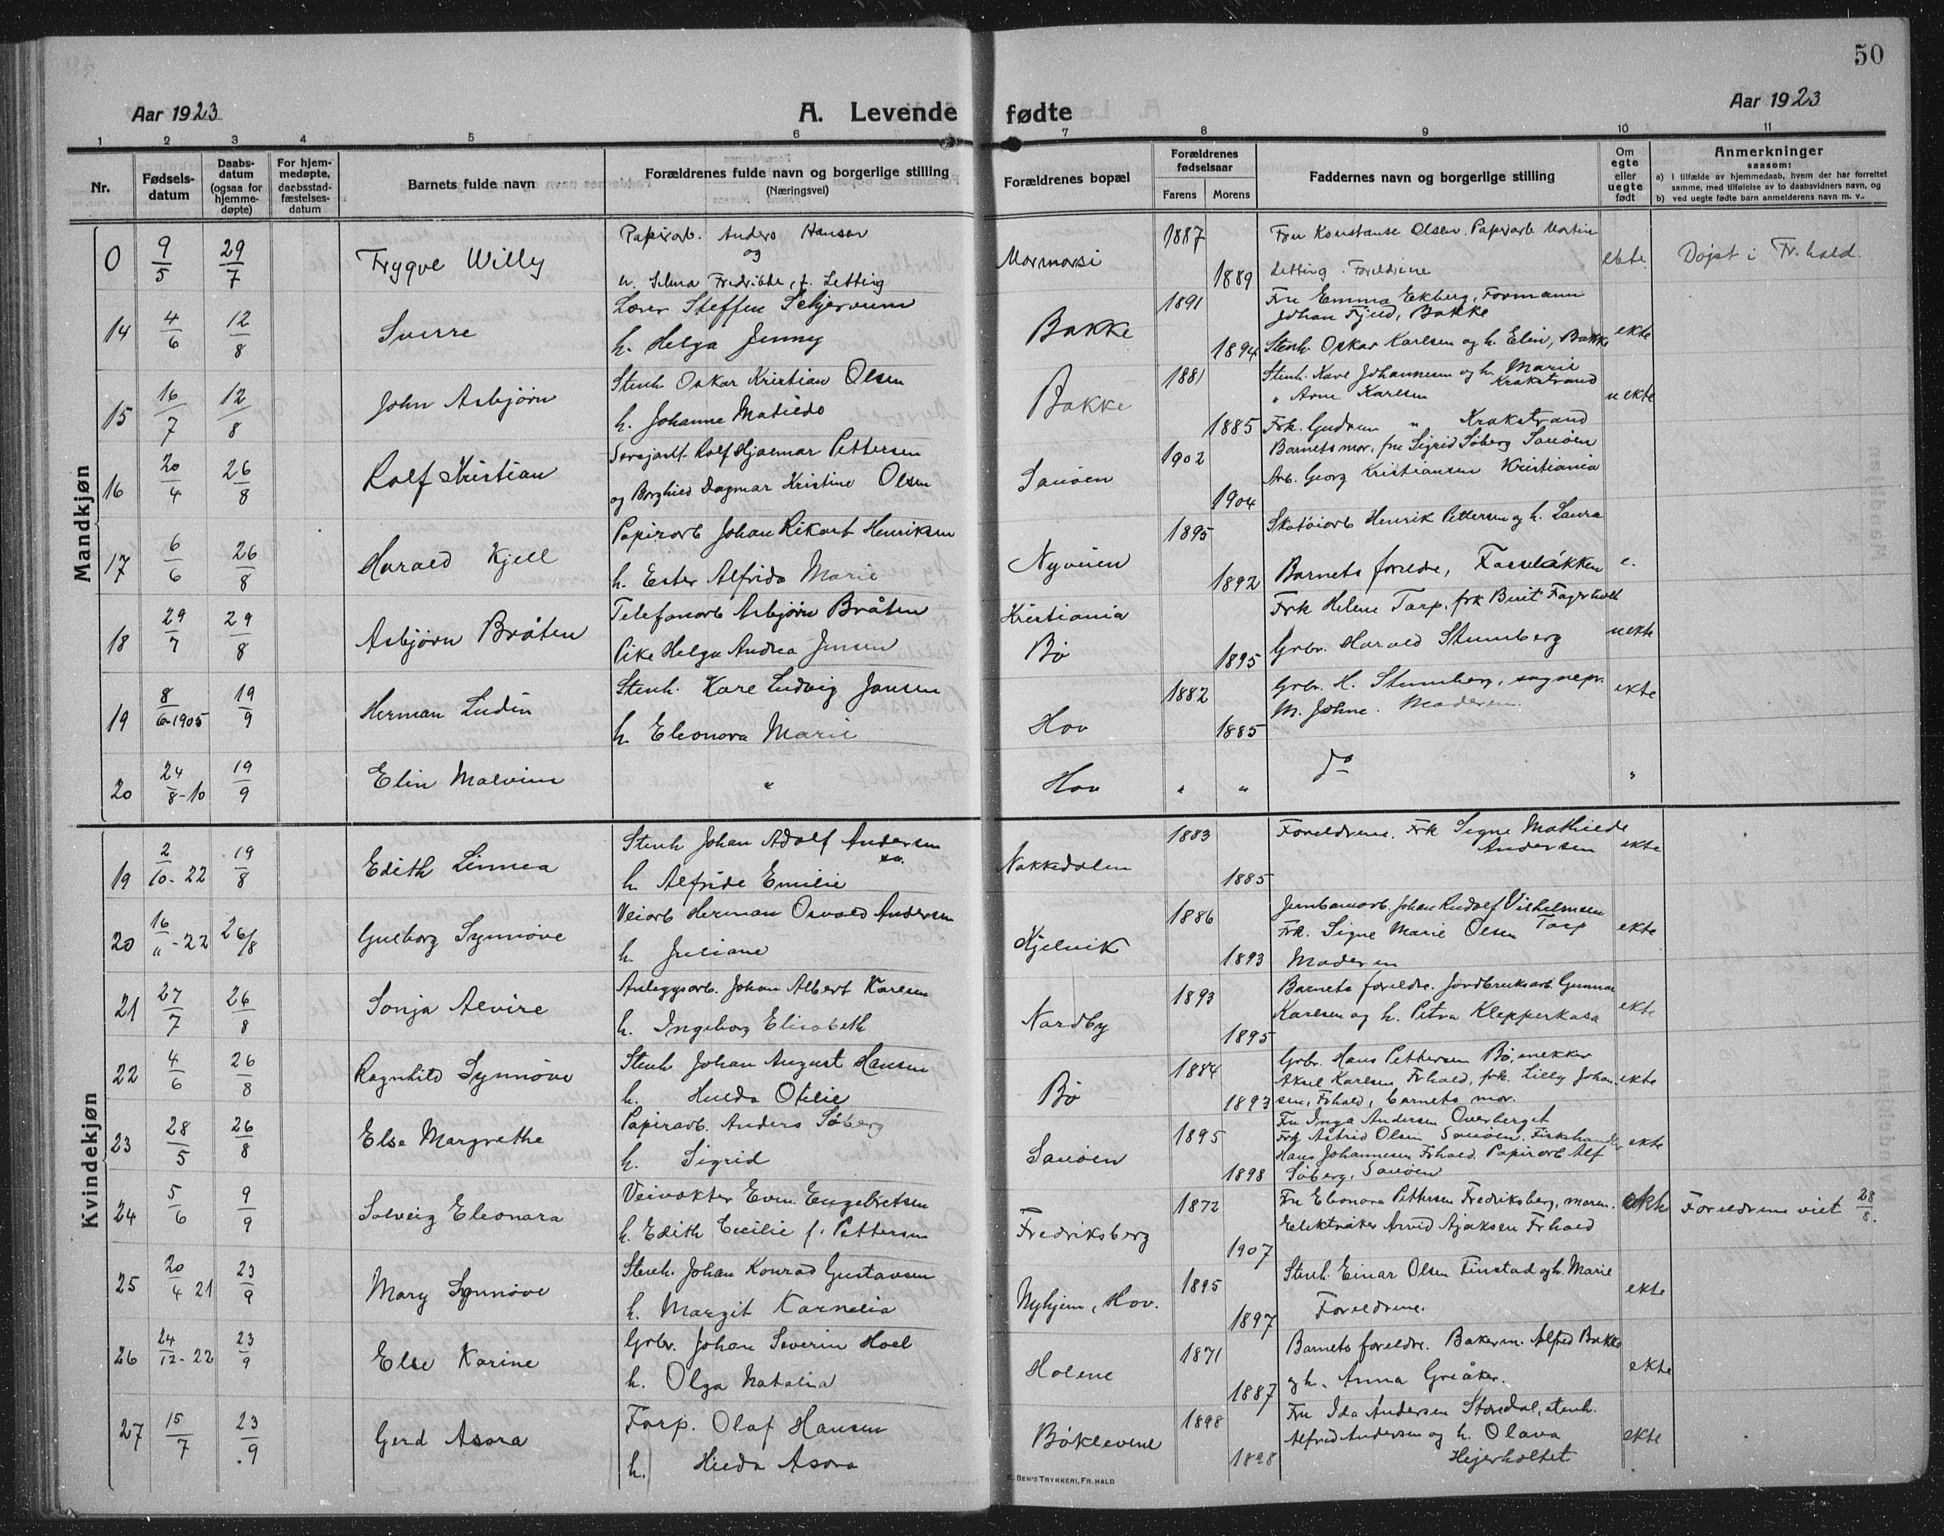 50
Aar 1923
A. Levende fødte
Aar 1923
1 2 3 4 5 6 7 8 9 10 11
Nr.
Fødsels-
datum
Daabs-
datum
(ogsaa for
hjemme-
døpte)
For hjem-
medøpte,
daabsstad-
fæstelses-
datum
Barnets fulde navn
Forældrenes fulde navn og borgerlige stilling
(Næringsvei)
Forældrenes bopæl
Forældrenes
fødselsaar
Farens Morens
Faddernes navn og borgerlige stilling
Om
egte
eller
uegte
født
Anmerkninger
saasom:
a) I tilfælde av hjemmedaab, hvem der har forrettet
samme, med tilføielse av to daabsvidners navn, og
b) ved uegte fødte barn anmelderens navn m. v..
Mandkjøn
0 9/5 29/7 Trygve Willy
Papirarb. Anders Hansen
og
h. Selma Fredrikke, f. Letting
1887
1889
Fru Konstanse Olsen. Papirarb Martin
Letting. Foreldrene
ekte
Døpt i Fr.hald.
14 4/6 12/8 Sverre
Lærer Steffen
h. Helga Jenny
Bakke
1891
1894
Fru Emma Ekberg, Formann
Johan Fjeld, Bakke
Stenh. Oskar Karlsen og h. Elin, Bakke
ekte
15 16/7 12/8 John Asbjørn
Stenh Oskar Kristian Olsen
h. Johanne Matilde
Bakke
1881
1885
Stenh. Karl Johannesen og h. Marie
Krakstrand
" Arne Karlsen
Frk. Gudrun " Krakstrand
uekte
16 20/4 26/8 Rolf Kristian
Rolf Hjalmar Pettersen
og Borghild Dagmar Kristine Olsen
Sauøen
1902
1904
Barnets mor, fru Sigrid Søberg Sauøen
Arb. Georg Kristiansen Kristiania
17 6/6 26/8 Harald Kjell
Papirarb Johan Rikart Henriksen
h. Ester Alfrida Marie
Nyveien
1895
1892
Skotøiarb Henrik Pettersen og h. Laura
Barnets foreldre,
e.
18 29/7 29/8 Asbjørn Bråten
Telefonarb Asbjørn Bråten
Pike Helga Andrea Jensen
Kristiania
Bø
1895
Frk Helene Tarp, frk Berit Fagerholt
Grbr. Harald Stumberg
uekte
19 8/6-1905 19/9 Herman Ludvin
Stenh. Karl Ludvig Jansen
h. Eleonora Marie
Hov
1882
1885
Grbr. H. Stumberg, sognepr.
M. Johne. Moderen
ekte
20 24/8-10 19/9 Elin Malvine
"
Hov
" "
do
"
Kvindekjøn
19 2/10-22 19/8 Edith Linnea
Stenh Johan Adolf Andersen
h. Alfride Emilie
Nakkedalen
1883
1885
Foreldrene. Frk Signe Mathilde
Andersen
ekte
20 16/11-22 26/8 Gulborg Synnøve
Veiarb Herman Osvald Andersen
h. Juliane
Kjelvik
1886
1893
Jernbanearb. Johan Rudolf Vilhelmsen
Torp
Frk. Signe Marie Olsen
Moderen
ekte
21 27/7 26/8 Sonja Alvire
Anleggsarb. Johan Albert Karlsen
h. Ingeborg Elisabeth
Nordby
1893
1895
Barnets foreldre. Jordbruksarb Gunnar
Karlsen og h. Petra Klepperkasa
ekte
22 4/6 26/8 Ragnhild Synnøve
Stenh Johan August Hansen
h. Hulda Otilie
Bø
1884
1893
Grbr. Hans Pettersen Bø, snekker
Aksel Karlsen Frhald, frk. Lilly Johan-
sen, Frhald, barnets mor.
ekte
23 28/5 26/8 Else Margrethe
Papirarb. Anders Søberg
h. Sigrid
Sauøen
1895
1898
Fru Inga Andersen Overberget
Frk Astrid Olsen Sauøen. Fiskehandler
Hans Johannesen Frhald. Papirarb Alf
Søberg, Sauøen
ekte
24 5/6 9/9 Solveig Eleonora
Veivokter Even Engebretsen
h. Edith Cecilie f. Pettersen
Fredriksberg
1872
1907
Fru Eleonora Pettersen Fredriksberg, moren.
Elektriker Arvid Ajaksen Frhald
ekte
Foreldrene viet 28/8.
25 20/4 21 23/9 Mary Synnøve
Stenh. Johan Konrad Gustavsen
h. Margit Karnelia
Nyhjem, Hov.
1895
1897
Stenh. Einar Olsen Finstad og h. Marie
Foreldrene.
ekte
26 24/12-22 23/9 Else Karine
Grbr. Johan Severin Hoel
h. Olga Natalia
Holene
1871
1887
Barnets foreldre. Bakerm. Alfred Bakke
og h. Anna Greåker.
ekte
27 15/7 23/9 Gerd Asora
Forp. Olaf Hansen
h. Hilda Asora
Bøklevene
1898
1898
Fru Ida Andersen Storedal, stenh.
Alfred Andersen og h. Olava
Hejerholtet
ekte
BEN'S TRYKKERI, FR.HALD